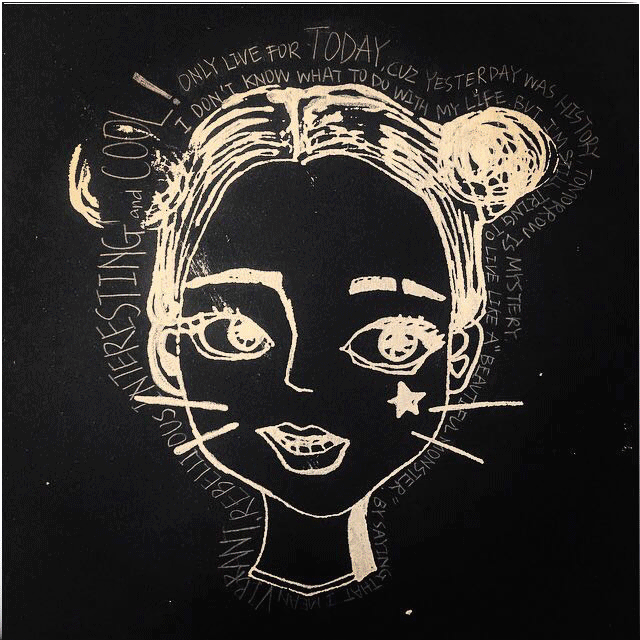 ONLY LIVE FOR TODAY, CUZ YESTERDAY WAS HISTORY, TOMORROW IS MYSTERY.
I DON'T KNOW WHAT TO DO WITH MY LIFE, BUT I'M STILL TRYING TO LIVE LIKE A "BEAUTIFUL MONSTER"
BY SAYING THAT I MEAN VIBRANT, REBELLIOUS INTERESTIING and COOL!